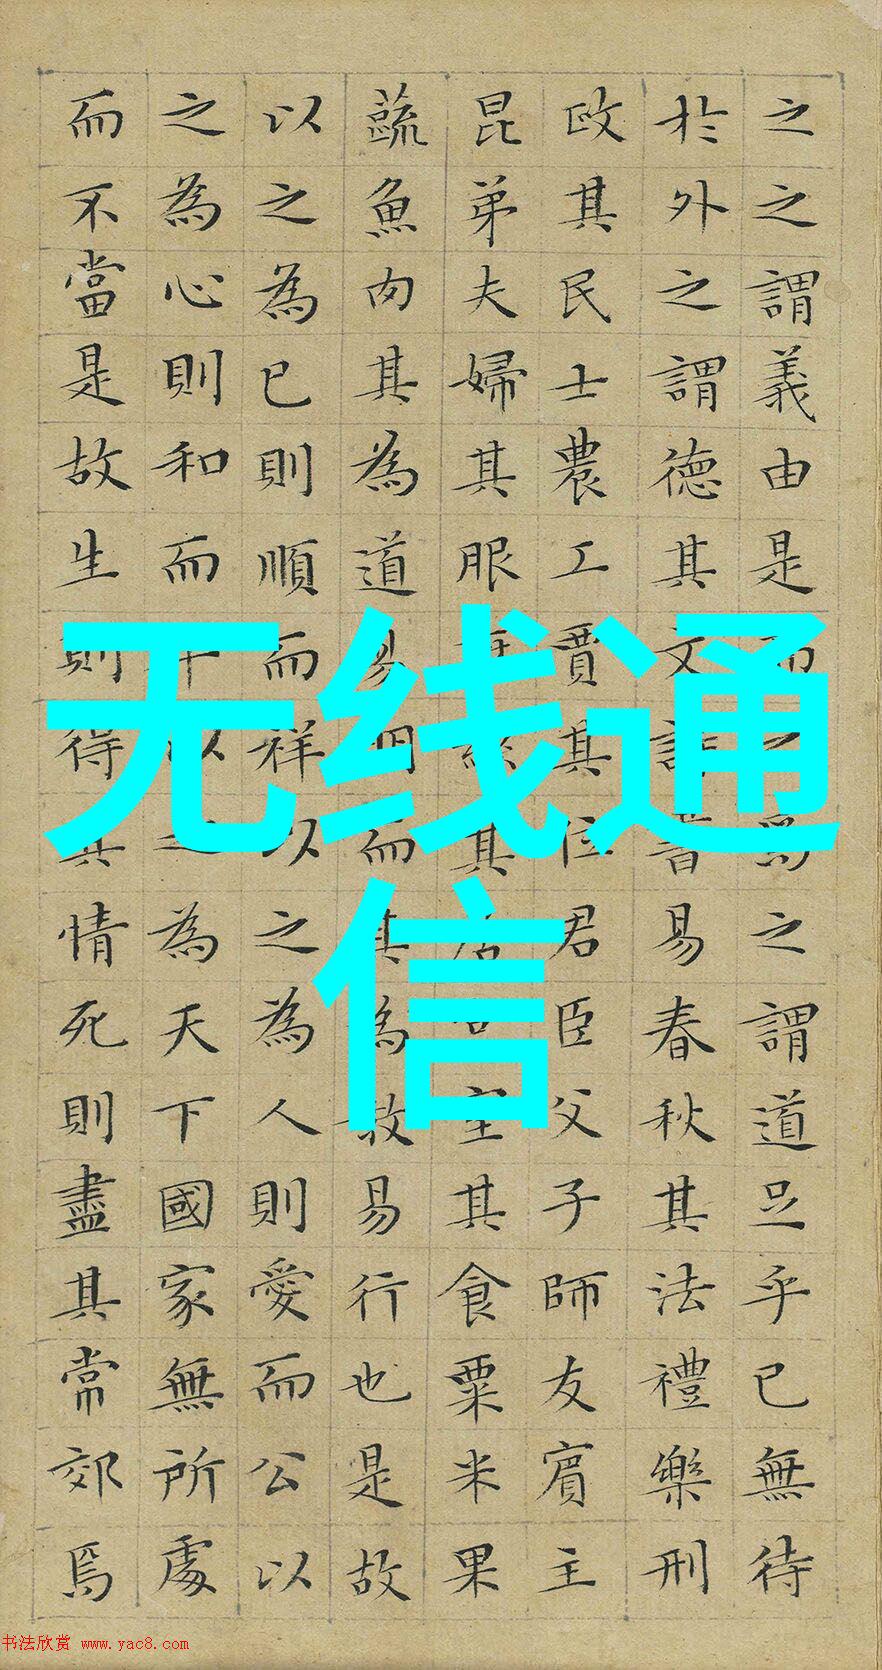 之之謂義由是而之焉之謂道足乎已無待
於外之謂德其文詩書易春秋其法禮樂刑
政其民士農工賈其位君臣父子師友賓主
昆弟夫婦其服麻絲其居宮室其食粟米果
蔬魚肉其為道易明而其為教易行也是故
以之為已則順而祥以之為人則愛而公以
之為心則和而平以之為天下國家無所處
而不當是故生則得其情死則盡其常郊焉
无线通
信
书法欣赏 www.yac8.com